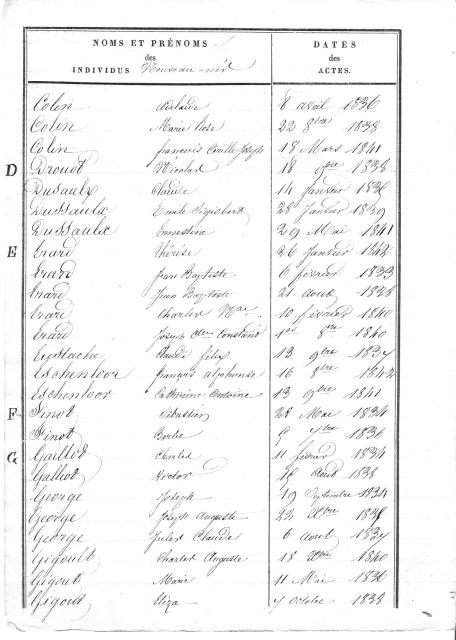 NOMS ET PRÉNOMS
des
INDIVIDUS Nouveau nés
DATES
des
ACTES.
Colin Adelaide 8 avril 1836
Colin Marie Rose 22 8bre 1838
Colin francois Joseph 18 Mars 1841
D Drouot Nicolas 18 9bre 1838
Dusaulx Claude 14 Janvier
Dussaulx Emile Sigisbert 28 Janvier 1839
Dussaulx Ernestine 29 Mai 1841
E Erard Thérèse 26 Janvier 1842
Erard Jean Baptiste 6 fevrier 1833
Erard Jean Baptiste 21 aout 1838
Erard Charles 10 fevrier 1840
Erard Joseph Constant 1er 8bre 1840
Eustache Claude félix 13 9bre 1837
Eschenloor françois alphonse 16 8bre 1842
Eschenloor Catherine Antoine 13 9bre 1841
F Finot Sébastien 28 Mai 1834
Finot 7bre 1836
G Gailliot Charles 11 fevrier 1834
Galliot Victor Aout 1838
George Joseph 19 Septembre 1834
George Joseph Auguste 22 Xbre
George Jules Claude 6 aout 1837
Gigoult Charles Auguste 18 Xbre 1840
Gigout Marie 11 Mai 1836
Gigout Eliza 7 octobre 1838